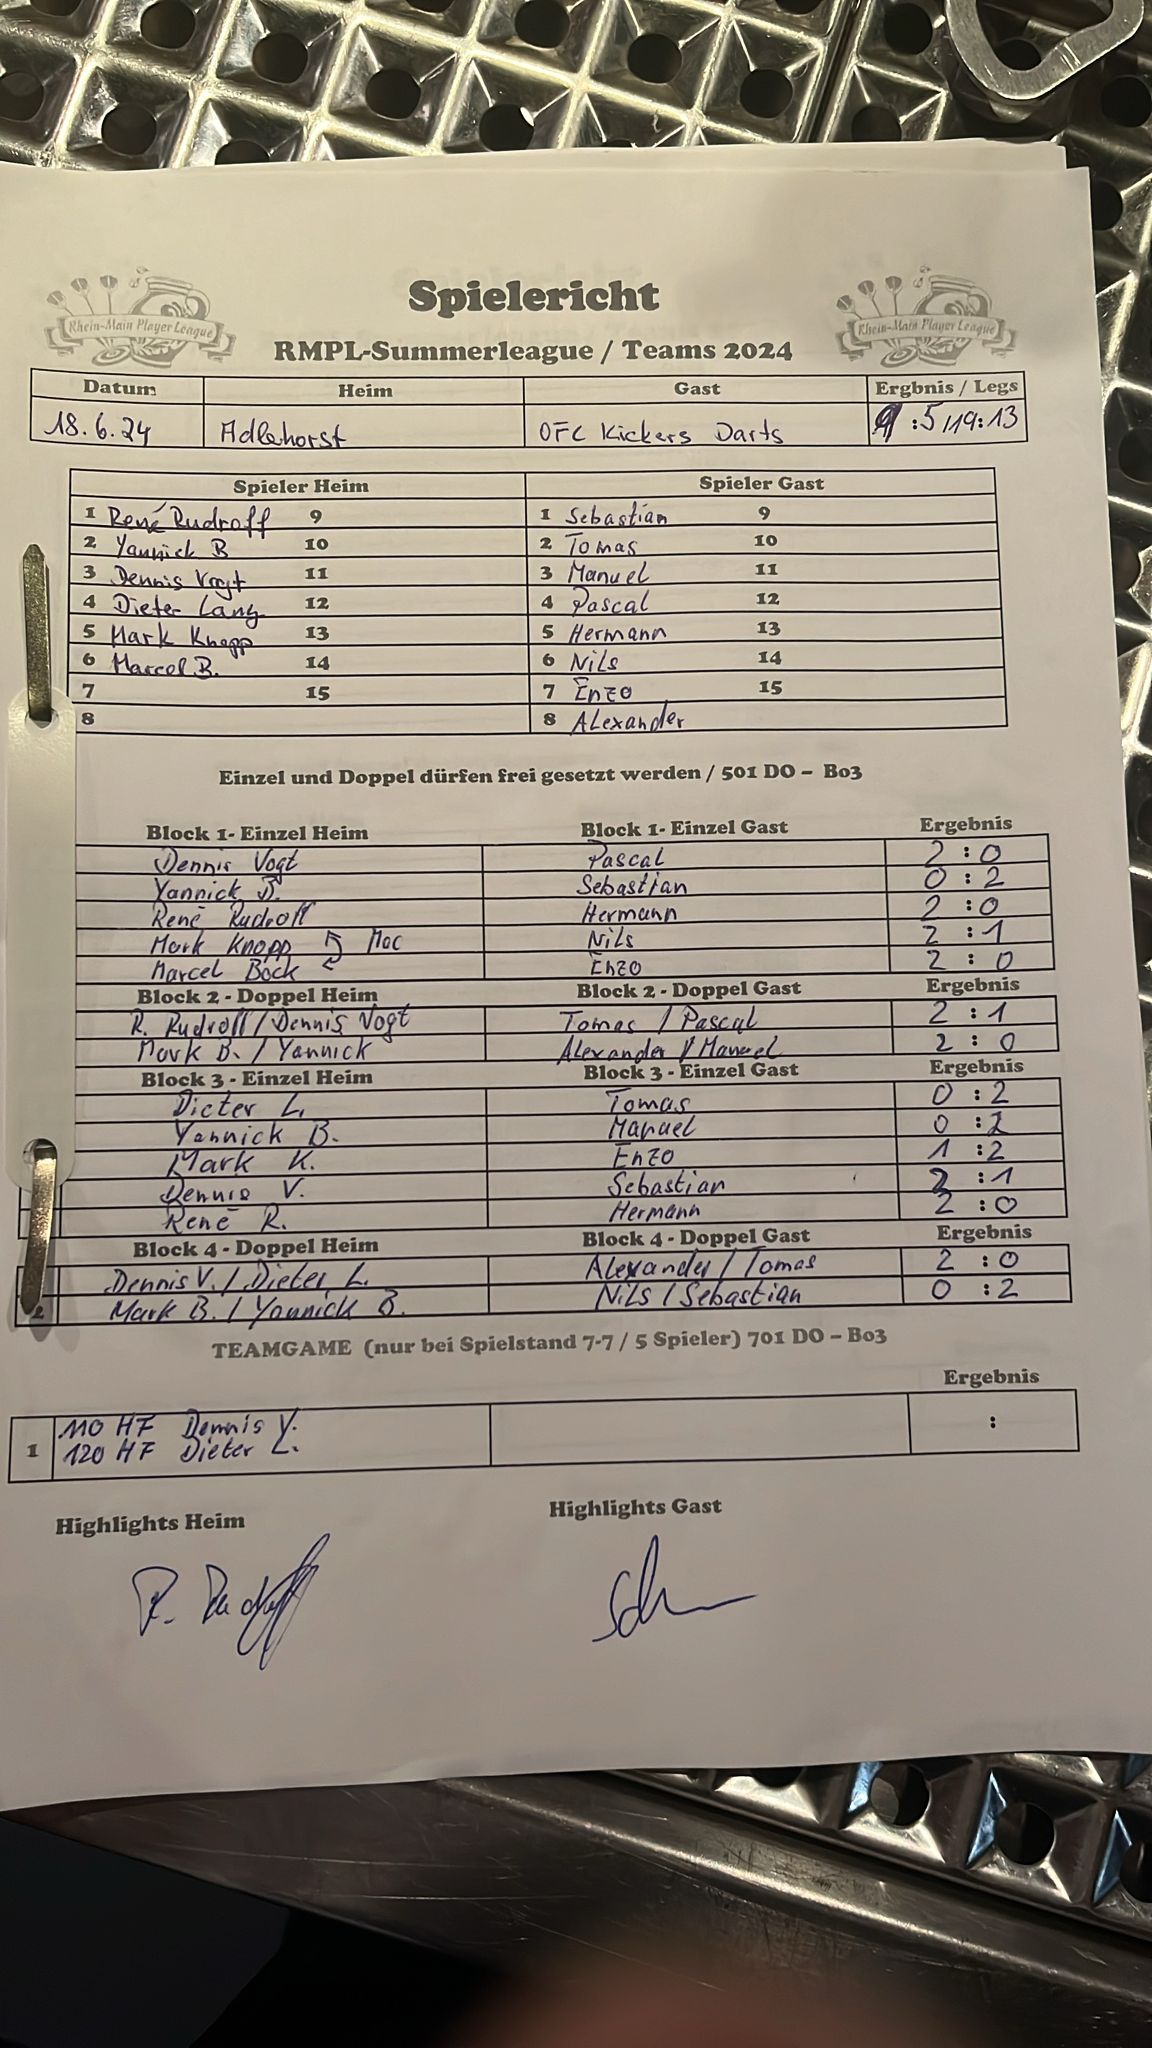 Spielericht
Rhein-Main Player League
Rhein-Main Player League
RMPL-Summerleague / Teams 2024
Datum Heim Gast Ergbnis / Legs
18.6.24 Adlehorst OFC Kickers Darts 9:5/19:13
Spieler Heim Spieler Gast
1 René Rudroff 9 1 Sebastian 9
2 Yannick B 10 2 Tomas 10
3 Dennis Vogt 11 3 Manuel 11
4 Dieter Lang 12 4 Pascal 12
5 Mark Knopp 13 5 Hermann 13
6 Marcel B. 14 6 Nils 14
7 15 7 Enzo 15
8 8 Alexander
Einzel und Doppel dürfen frei gesetzt werden / 501 DO – Bo3
Block 1- Einzel Heim Block 1- Einzel Gast Ergebnis
Dennis Vogt Pascal 2 : 0
Yannick B. Sebastian 0 : 2
René Rudroff Hermann 2 : 0
Mark Knopp Mac Nils 2 : 1
Marcel Bock Enzo 2 : 0
Block 2 - Doppel Heim Block 2 - Doppel Gast Ergebnis
R. Rudroff / Dennis Vogt Tomas / Pascal 2 : 1
Mark B. / Yannick Alexander / Manuel 2 : 0
Block 3 - Einzel Heim Block 3 - Einzel Gast Ergebnis
Dieter L. Tomas 0 : 2
Yannick B. Manuel 0 : 2
Mark K. Enzo 1 : 2
Dennis V. Sebastian 2 : 1
René R. Hermann 2 : 0
Block 4 - Doppel Heim Block 4 - Doppel Gast Ergebnis
Dennis V. / Dieter L. Alexander / Tomas 2 : 0
2 Mark B. / Yannick B. Nils / Sebastian 0 : 2
TEAMGAME (nur bei Spielstand 7-7 / 5 Spieler) 701 DO – Bo3
Ergebnis
110 HF Dennis V.
1 :
120 HF Dieter L.
Highlights Heim Highlights Gast
R. Rudroff